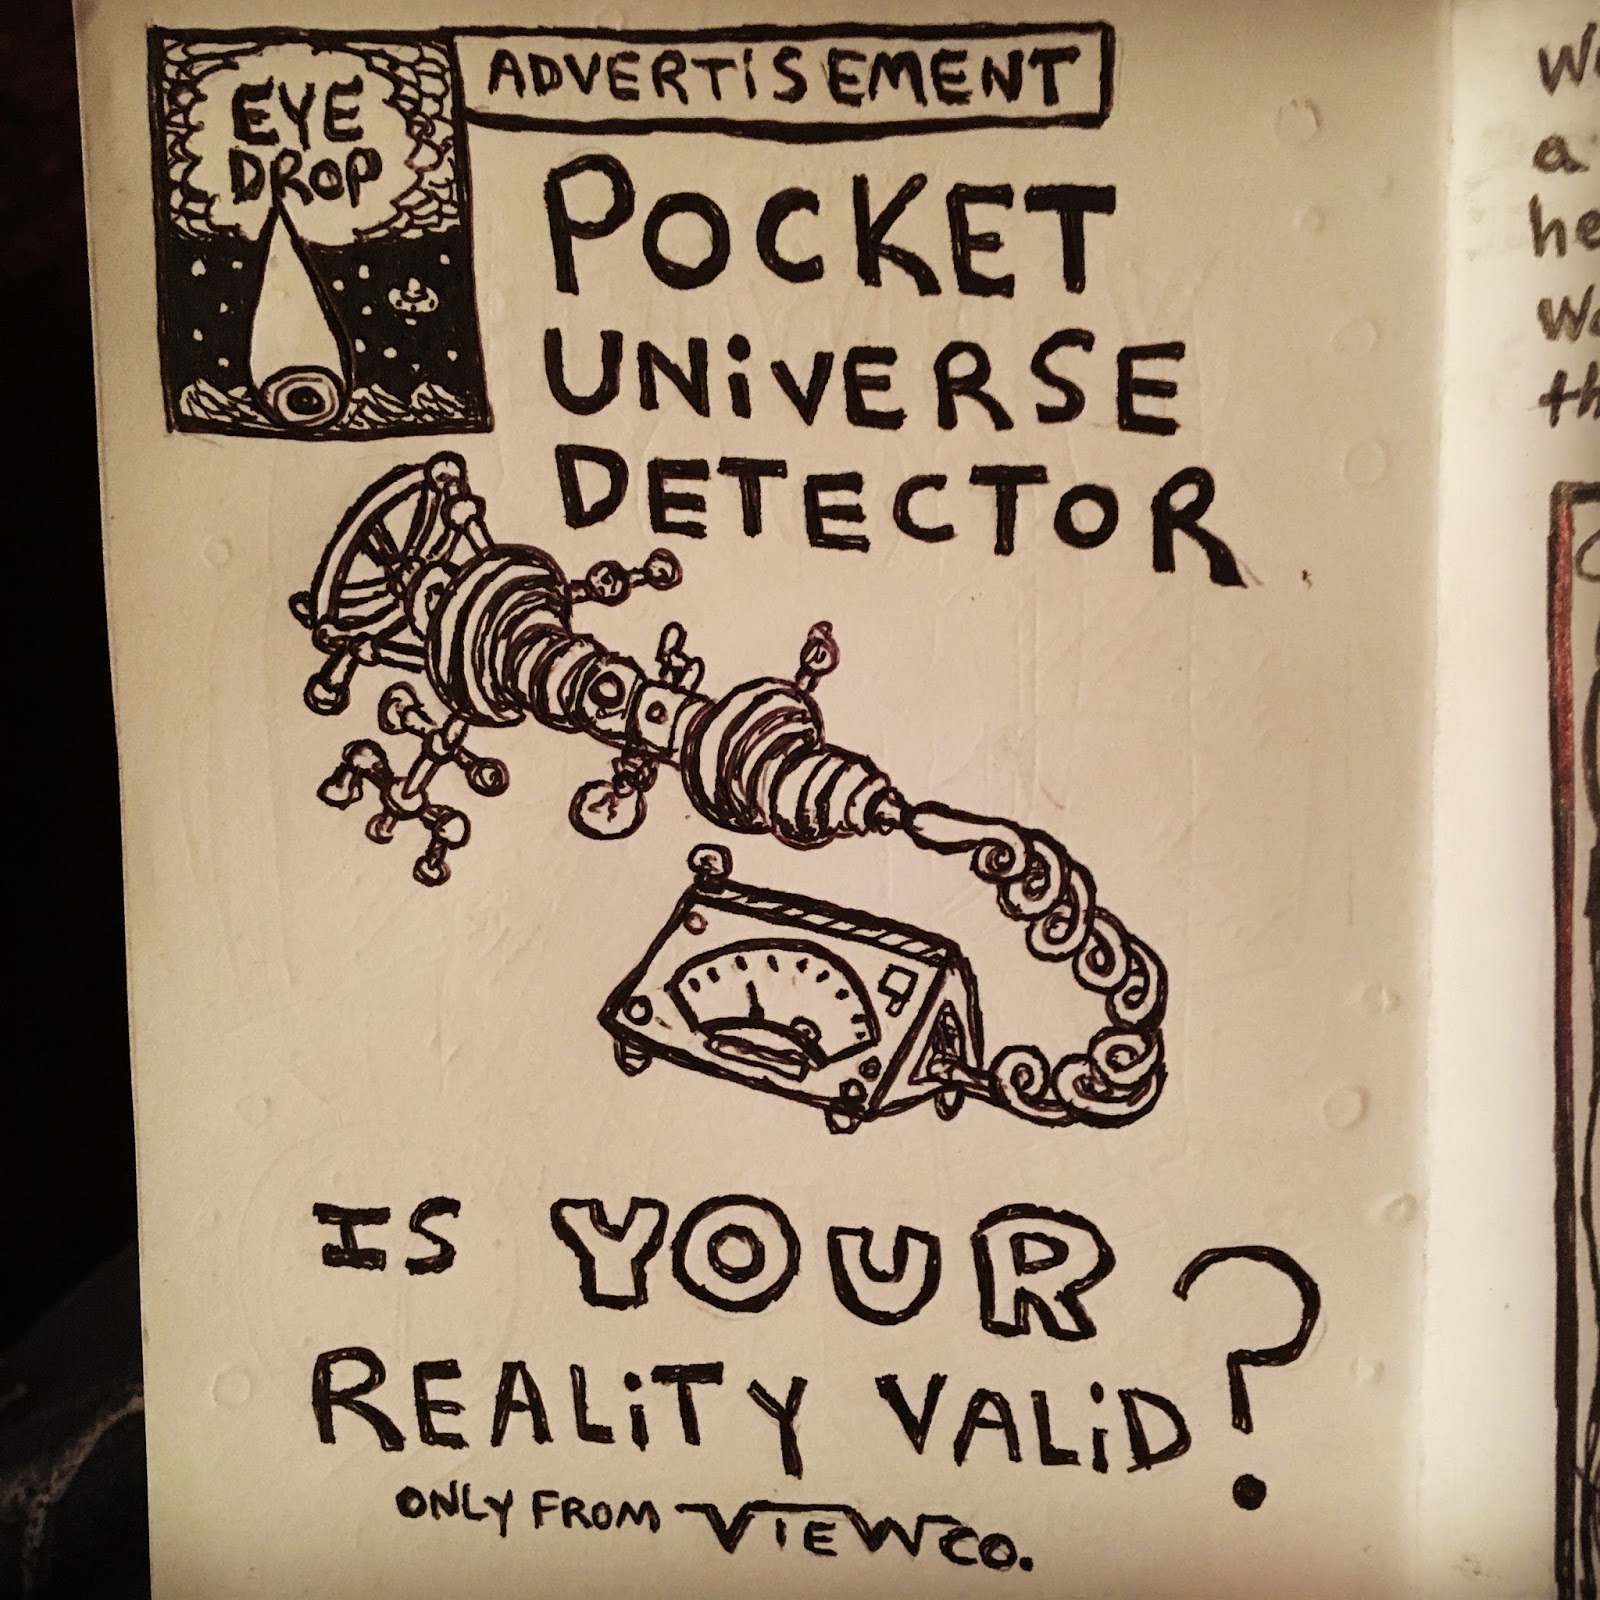 EYE
DROP
ADVERTISEMENT
POCKET
UNIVERSE
DETECTOR
IS YOUR
REALITY VALID?
ONLY FROM VIEWCO.
a